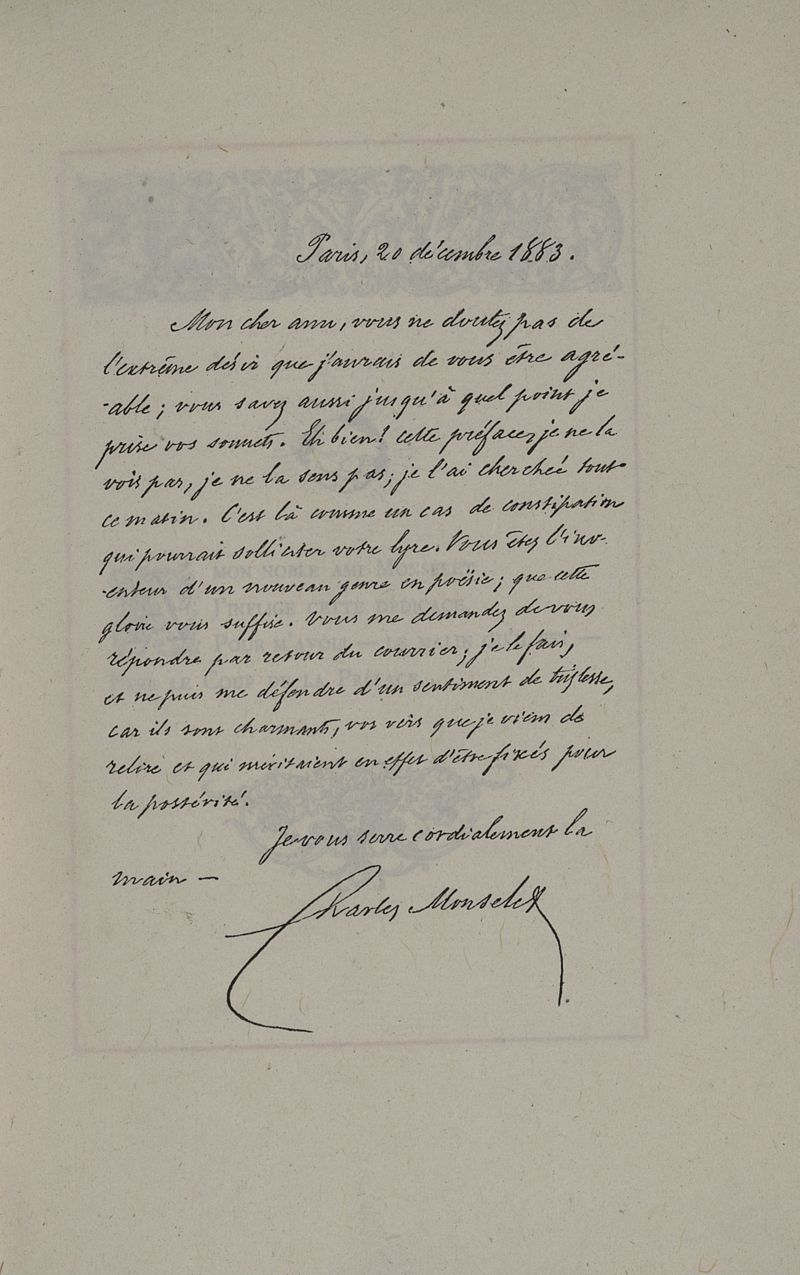 Paris, 20 décembre 1883.
Mon cher ami, vous ne doutez pas de
l'extrême désir que j'aurais de vous être agré-
-able ; vous savez aussi jusqu'à quel point je
prise vos sonnets. Eh bien ! cette préface, je ne la
vois pas, je ne la sens pas ; je l'ai cherchée tout
ce matin. C'est là comme un cas de constipation
qui pourrait solliciter votre lyre. Vous êtes l'inv-
-enteur d'un nouveau genre en poësie ; que cette
gloire vous suffise. Vous me demandez de vous
répondre par retour du courrier ; je le fais,
et ne puis me défendre d'un sentiment de tristesse,
car ils sont charmants, vos vers que je viens de
relire et qui méritaient en effet d'être fixés pour
la postérité.
Je vous serre cordialement la
main —
Charles Monselet